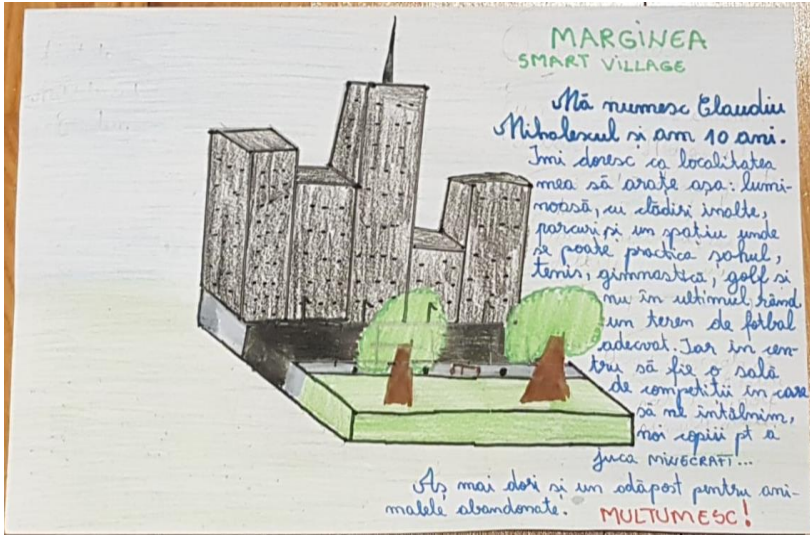 MARGINEA
SMART VILLAGE
Mă numesc Claudiu
Miholescul și am 10 ani.
Imi doresc ca localitatea
mea să arate așa: lumi-
noasă, cu clădiri inalte,
parcuri și un spațiu unde
se poate practica șahul,
tenis, gimnastică, golf și
nu în ultimul rând
un teren de fotbal
adecvat. Iar în cen-
tru să fie o sală
de competiții în care
să ne întâlnim,
noi copiii pt a
juca MINECRAFT...
Aș mai dori și un adăpost pentru ani-
malele abandonate.
MULTUMESC!